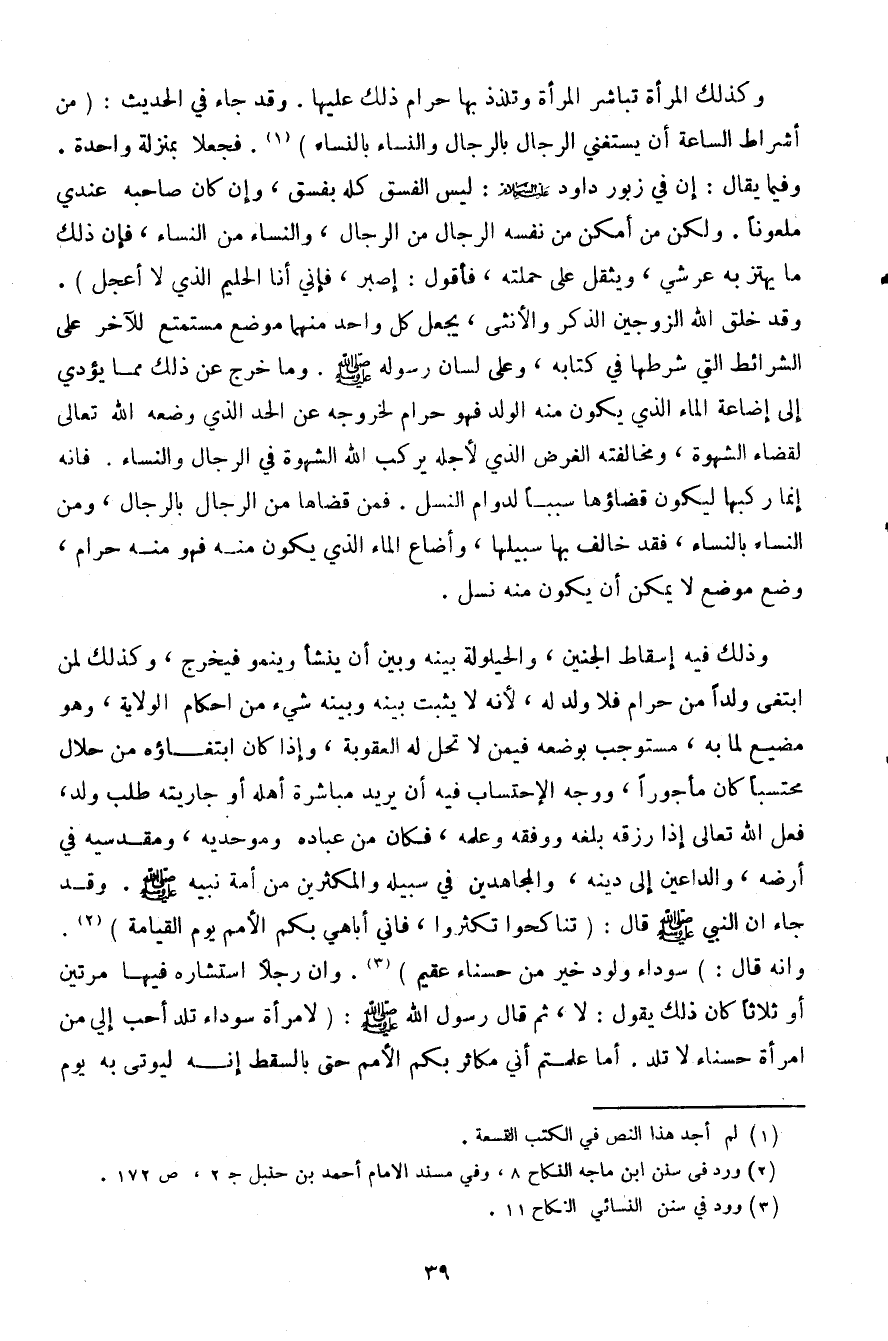 وكذلك المرأة تباشر المرأة وتلذذ بها حرام ذلك عليها . وقد جاء في الحديث : ( من
أشراط الساعة أن يستغني الرجال بالرجال والنساء بالنساء ) (١) . فجعلا بمنزلة واحدة .
وفيما يقال : إن في زبور داود عليه السلام : ليس الفسق كله بفسق ، وإن كان صاحبه عندي
ملعوناً . ولكن من أمكن من نفسه الرجال من الرجال ، والنساء من النساء ، فإن ذلك
ما يهتز به عرشي ، ويثقل على حملته ، فأقول : إصبر ، فإني أنا الحليم الذي لا أعجل ) .
وقد خلق الله الزوجين الذكر والأنثى ، يجعل كل واحد منهما موضع مستمتع للآخر على
الشرائط التي شرطها في كتابه ، وعلى لسان رسوله ﷺ . وما خرج عن ذلك مما يؤدي
إلى إضاعة الماء الذي يكون منه الولد فهو حرام لخروجه عن الحد الذي وضعه الله تعالى
لقضاء الشهوة ، ومخالفته الغرض الذي لأجله يركب الله الشهوة في الرجال والنساء . فانه
إنما ركبها ليكون قضاؤها سبباً لدوام النسل . فمن قضاها من الرجال بالرجال ، ومن
النساء بالنساء ، فقد خالف بها سبيلها ، وأضاع الماء الذي يكون منه فهو منه حرام ،
وضع موضع لا يمكن أن يكون منه نسل .
وذلك فيه إسقاط الجنين ، والحيلولة بينه وبين أن ينشأ وينمو فيخرج ، وكذلك لمن
ابتغى ولداً من حرام فلا ولد له ، لأنه لا يثبت بينه وبينه شيء من احكام الولاية ، وهو
مضيع لما به ، مستوجب بوضعه فيمن لا تحل له العقوبة ، وإذا كان ابتغاؤه من حلال
محتسباً كان مأجوراً ، ووجه الإحتساب فيه أن يريد مباشرة أهله أو جاريته طلب ولد،
فعل الله تعالى إذا رزقه بلغه ووفقه وعلمه ، فكان من عباده وموحديه ، ومقدسيه في
أرضه ، والداعين إلى دينه ، والمجاهدين في سبيله والمكثرين من أمة نبيه ﷺ . وقد
جاء ان النبي ﷺ قال : ( تناكحوا تكثروا ، فاني أباهي بكم الأمم يوم القيامة ) (٢) .
وانه قال : ) سوداء ولود خير من حسناء عقيم ) (٣) . وان رجلاً استشاره فيها مرتين
أو ثلاثاً كان ذلك يقول : لا ، ثم قال رسول الله ﷺ : ( لامرأة سوداء تلد أحب إلي من
امرأة حسناء لا تلد . أما علمتم أني مكاثر بكم الأمم حتى بالسقط إنه ليوتى به يوم
(١) لم أجد هذا النص في الكتب التسعة .
(٢) ورد فى سنن ابن ماجه النكاح ٨ ، وفي مسند الامام أحمد بن حنبل جـ ٢ ، ص ١٧٢ .
(٣) وود في سنن النسائي النكاح ١١ .
٣٩